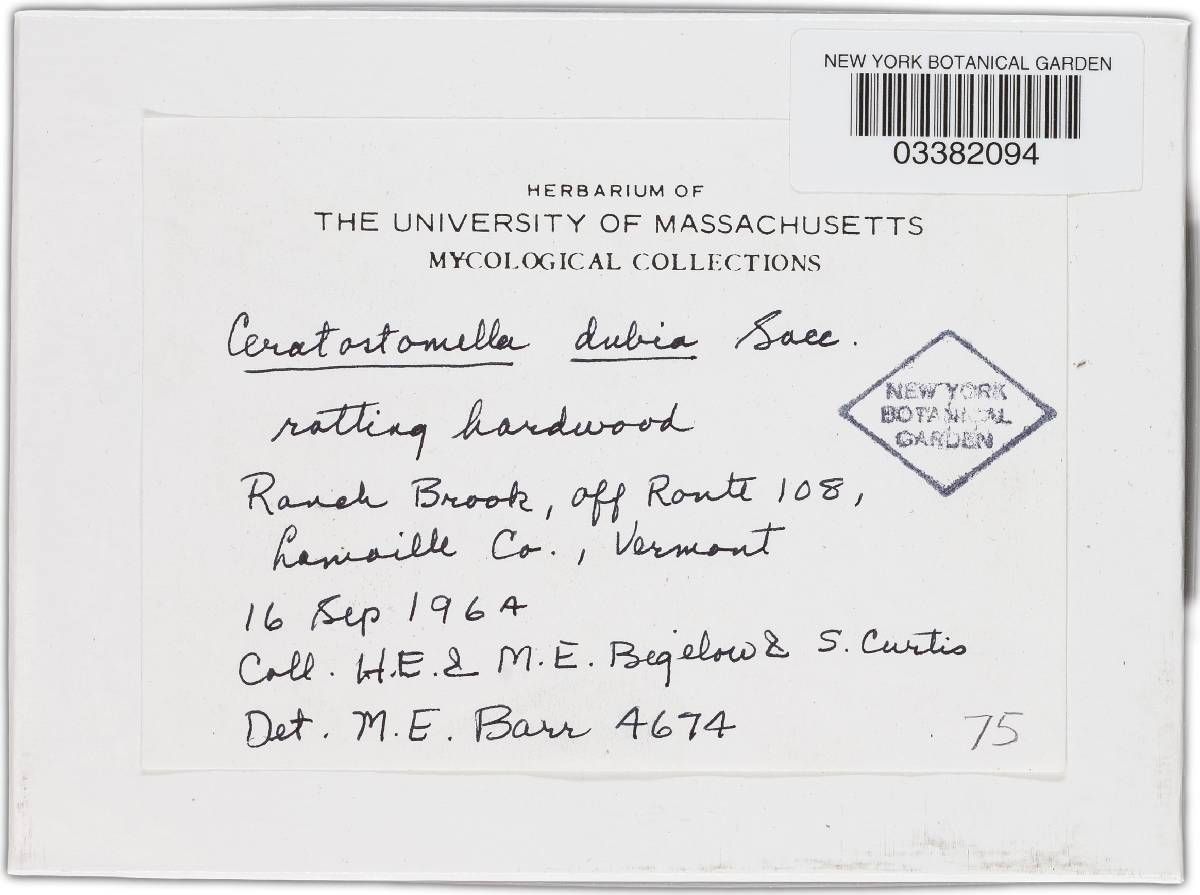 NEW YORK BOTANICAL GARDEN
03382094
HERBARIUM OF
THE UNIVERSITY OF MASSACHUSETTS
MYCOLOGICAL COLLECTIONS
Ceratostomella dubia Sacc.
rotting hardwood
NEW YORK
BOTANICAL
GARDEN
Ranch Brook, off Route 108,
Lamoille Co., Vermont
16 Sep 1964
Coll. H.E. & M.E. Bigelow & S. Curtis
Det. M.E. Barr 4674
75